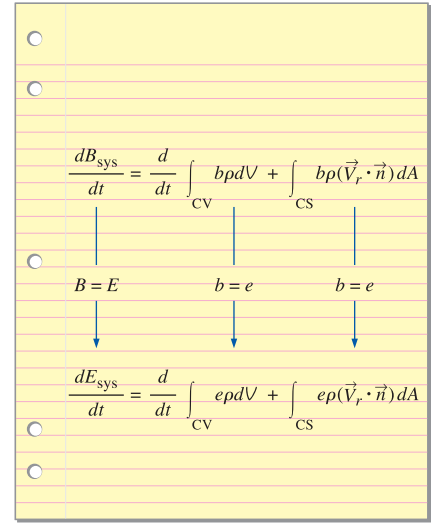 dB_sys/dt = d/dt ∫_CV bρdV + ∫_CS bρ(V⃗_r · n⃗) dA
B = E b = e b = e
dE_sys/dt = d/dt ∫_CV eρdV + ∫_CS eρ(V⃗_r · n⃗) dA